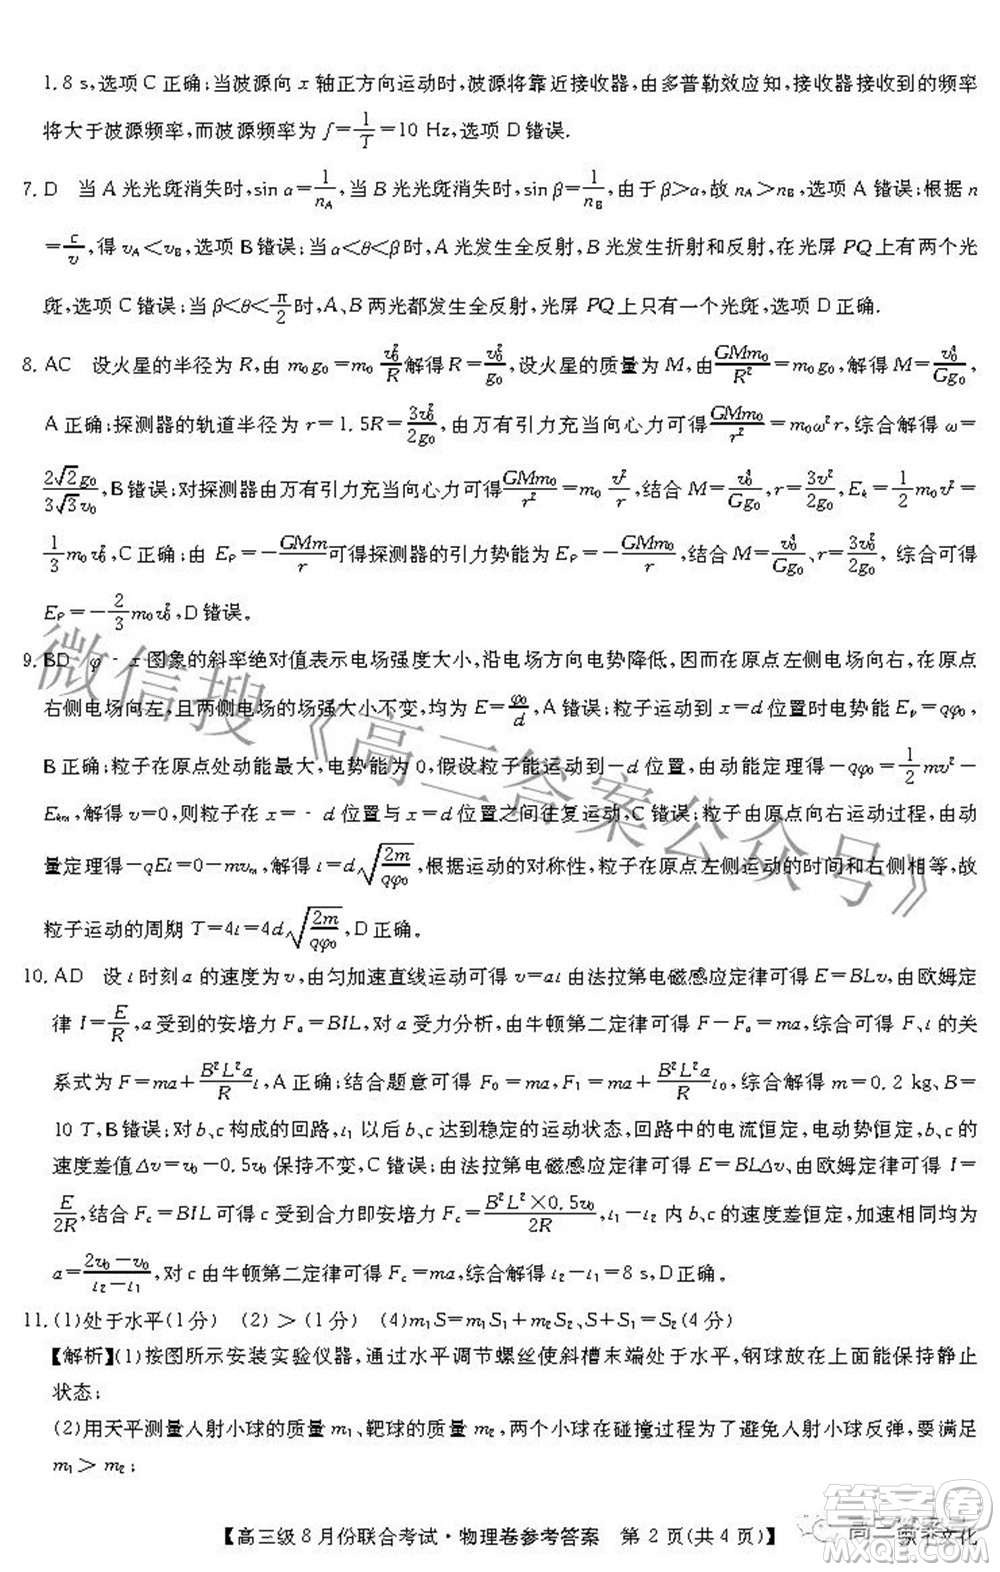 1.8 s,选项C正确;当波源向 x 轴正方向运动时,波源将靠近接收器,由多普勒效应知,接收器接收到的频率
将大于波源频率,而波源频率为 f=1/T=10 Hz,选项D错误.
7. D 当A光光斑消失时,sin α=1/n_A,当B光光斑消失时,sin β=1/n_B,由于β>α,故n_A>n_B,选项A错误;根据n
=c/v,得v_A<v_B,选项B错误;当α<θ<β时,A光发生全反射,B光发生折射和反射,在光屏PQ上有两个光
斑,选项C错误;当β<θ<π/2时,A、B两光都发生全反射,光屏PQ上只有一个光斑,选项D正确.
8. AC 设火星的半径为R,由m₀g₀=m₀v₀²/R,解得R=v₀²/g₀,设火星的质量为M,由GMm₀/R²=m₀g₀,解得M=v₀⁴/Gg₀,
A正确;探测器的轨道半径为r=1.5R=3v₀²/2g₀,由万有引力充当向心力可得GMm₀/r²=m₀ω²r,综合解得ω=
2√2g₀/3√3v₀,B错误;对探测器由万有引力充当向心力可得GMm₀/r²=m₀v²/r,结合M=v₀⁴/Gg₀,r=3v²/2g₀,E_k=1/2m₀v²=
1/3m₀v₀²,C正确;由E_P=-GMm/r可得探测器的引力势能为E_P=-GMm₀/r,结合M=v₀⁴/Gg₀、r=3v₀²/2g₀,综合可得
E_P=-2/3m₀v₀²,D错误。
9. BD φ-x图象的斜率绝对值表示电场强度大小,沿电场方向电势降低,因而在原点左侧电场向右,在原点
右侧电场向左,且两侧电场的场强大小不变,均为E=φ₀/d,A错误;粒子运动到x=d位置时电势能E_p=qφ₀,
B正确;粒子在原点处动能最大,电势能为0,假设粒子能运动到-d位置,由动能定理得-qφ₀=1/2mv²-
E_km,解得v=0,则粒子在x=-d位置与x=d位置之间往复运动,C错误;粒子由原点向右运动过程,由动
量定理得-qEt=0-mv_m,解得t=d√(2m/qφ₀),根据运动的对称性,粒子在原点左侧运动的时间和右侧相等,故
粒子运动的周期T=4t=4d√(2m/qφ₀),D正确。
10. AD 设t时刻a的速度为v,由匀加速直线运动可得v=at,由法拉第电磁感应定律可得E=BLv,由欧姆定
律I=E/R,a受到的安培力F_a=BIL,对a受力分析,由牛顿第二定律可得F-F_a=ma,综合可得F、t的关
系式为F=ma+B²L²a/R t,A正确;结合题意可得F₀=ma,F₁=ma+B²L²a/R t₀,综合解得m=0.2 kg,B=
10 T,B错误;对b、c构成的回路,t₁以后b、c达到稳定的运动状态,回路中的电流恒定,电动势恒定,b、c的
速度差值Δv=v₀-0.5v₀保持不变,C错误;由法拉第电磁感应定律可得E=BLΔv,由欧姆定律可得I=
E/2R,结合F_c=BIL可得c受到合力即安培力F_c=B²L²×0.5v₀/2R,t₁-t₂内b、c的速度差恒定,加速相同均为
a=(2v₀-v₀)/(t₂-t₁),对c由牛顿第二定律可得F_c=ma,综合解得t₂-t₁=8 s,D正确。
11. (1)处于水平(1分) (2)>(1分) (4)m₁S=m₁S₁+m₂S₂、S=S₂(4分)
【解析】(1)按图所示安装实验仪器,通过水平调节螺丝使斜槽末端处于水平,钢球放在上面能保持静止
状态;
(2)用天平测量入射小球的质量m₁、靶球的质量m₂,两个小球在碰撞过程为了避免入射小球反弹,要满足
m₁>m₂;
【高三级8月份联合考试·物理卷参考答案 第2页(共4页)】
微信搜《高三答案公众号》
答案卷